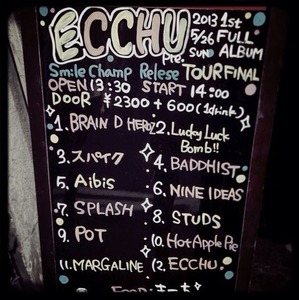 ECCHU Pre.
2013 1st
5/26 FULL
SUN ALBUM
Smile Champ Relese TOUR FINAL
OPEN 13:30 START 14:00
DOOR ¥2300+600(1drink)
1. BRAIN D HEROZ
2. Lucky Luck Bomb!!
3. スパイク
4. BADDHIST
5. Aibis
6. NINE IDEAS
7. SPLASH
8. STUDS
9. POT
10. Hot Apple Pie
11. MARGALINE
12. ECCHU